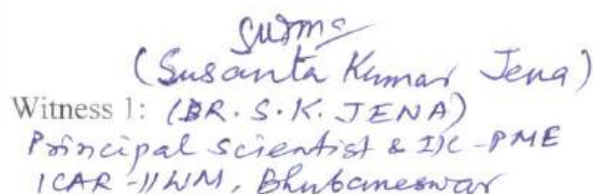 (Susanta Kumar Jena)
Witness 1: (DR. S. K. JENA)
Principal Scientist & I/C - PME
ICAR-IIWM, Bhubaneswar